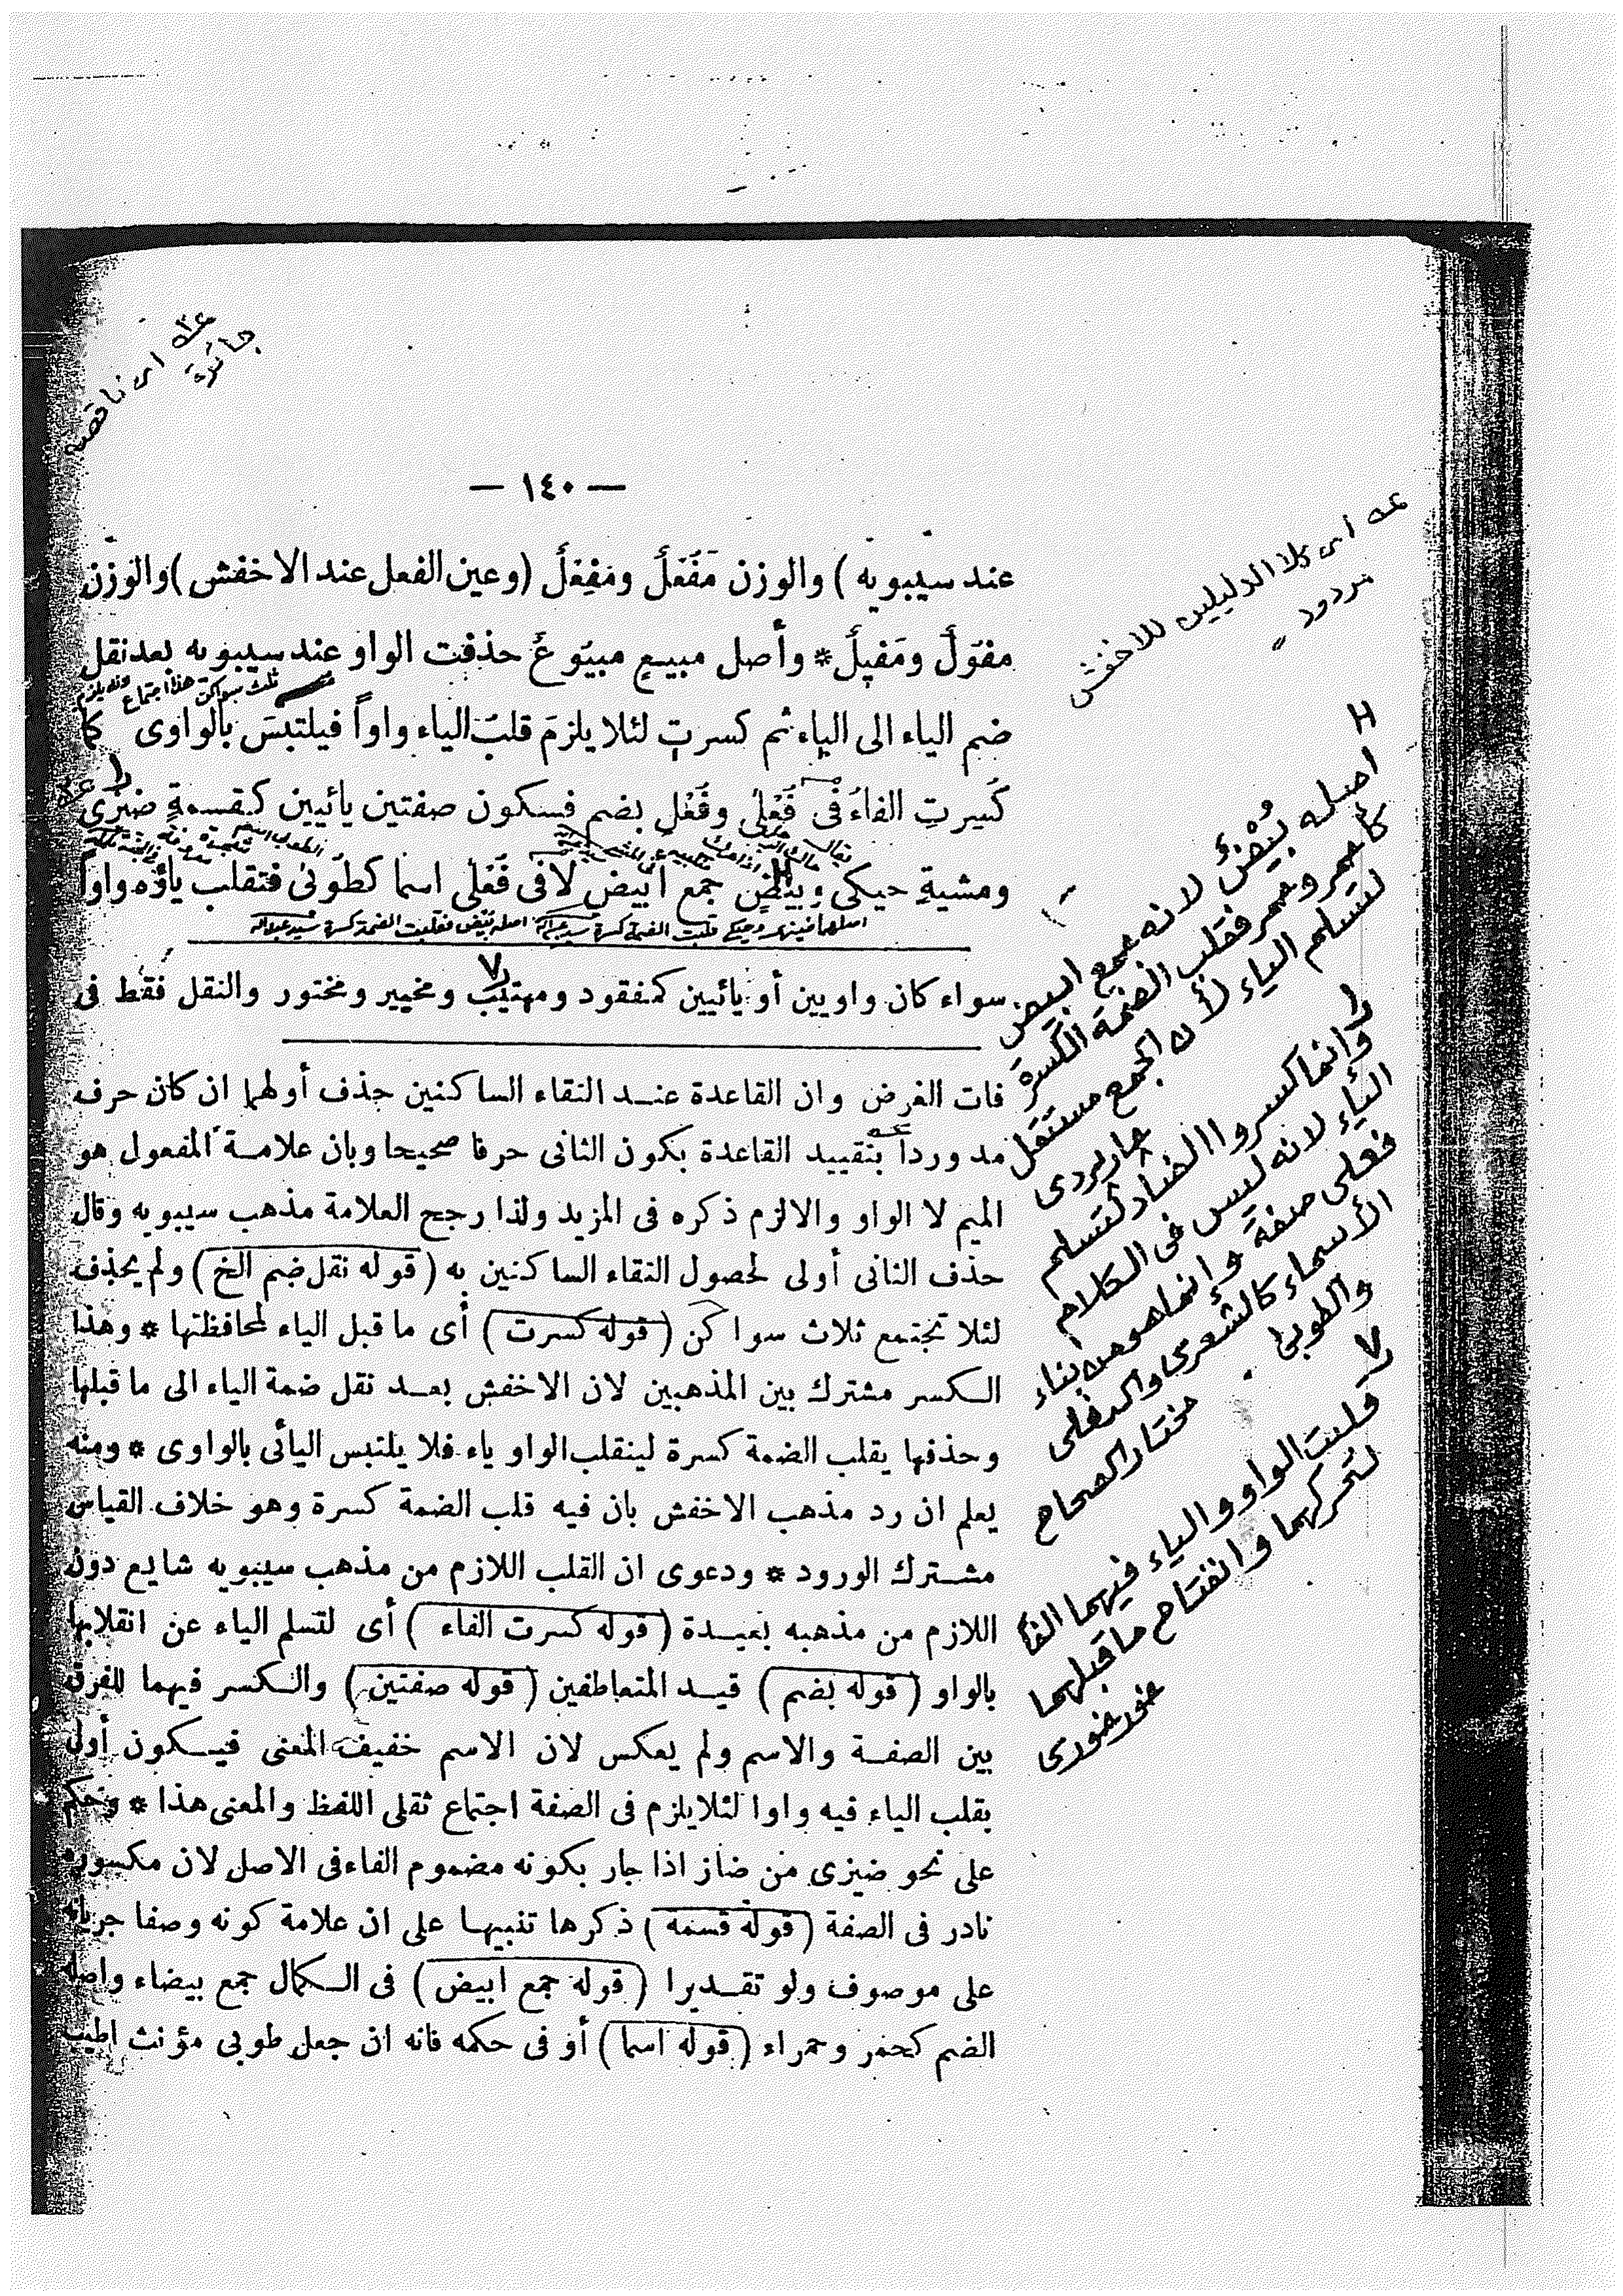 — ١٤٠ —
عند سيبويه ) والوزن مَفُعْلٌ ومَفِعْلٌ ( وعين الفعل عند الاخفش ) والوزن
مفُولٌ ومَفِيلٌ * وأصل مبيع مبيُوعٌ حذفت الواو عند سيبويه بعد نقل
ضم الياء الى الياء ثم كسرت لئلا يلزمَ قلبُ الياء واواً فيلتبسَ بالواوى كما
كُسِرتِ الفاءُ فى فُعْلى وفُعْلٍ بضم فسكون صفتين يائيين كقسمةٍ ضيزى
ومشيةٍ حيكى وبيضٍ جمع أبيض لا فى فُعْلى اسما كطُوبى فتقلب ياؤه واواً
سواء كان واويين أو يائيين كمنقود ومهتيب ومخيير ومختور والنقل فقط فى
فات الغرض وان القاعدة عند التقاء الساكنين حذف أولهما ان كان حرف
مد وردا بتقييد القاعدة بكون الثانى حرفا صحيحا وبان علامة المفعول هو
الميم لا الواو والا لزم ذكره فى المزيد ولذا رجح العلامة مذهب سيبويه وقال
حذف الثانى أولى لحصول التقاء الساكنين به ( قوله نقل ضم الخ ) ولم يحذف
لئلا تجتمع ثلاث سواكن ( قوله كسرت ) أى ما قبل الياء لمحافظتها * وهذا
الكسر مشترك بين المذهبين لان الاخفش بعد نقل ضمة الياء الى ما قبلها
وحذفها يقلب الضمة كسرة لينقلب الواو ياء فلا يلتبس اليائى بالواوى * ومنه
يعلم ان رد مذهب الاخفش بان فيه قلب الضمة كسرة وهو خلاف القياس
مشترك الورود * ودعوى ان القلب اللازم من مذهب سيبويه شايع دون
اللازم من مذهبه بعيدة ( قوله كسرت الفاء ) أى لتسلم الياء عن انقلابها
بالواو ( قوله بضم ) قيد المتعاطفين ( قوله صفتين ) والكسر فيهما للفرق
بين الصفة والاسم ولم يعكس لان الاسم خفيف المعنى فيكون أولى
بقلب الياء فيه واوا لئلا يلزم فى الصفة اجتماع ثقلى اللفظ والمعنى هذا * وحكم
على نحو ضيزى من ضاز اذا جار بكونه مضموم الفاء فى الاصل لان مكسوره
نادر فى الصفة ( قوله قسمة ) ذكرها تنبيها على ان علامة كونه وصفا جريانه
على موصوف ولو تقديرا ( قوله جمع ابيض ) فى الكمال جمع بيضاء واصله
الضم كحمر وحمراء ( قوله اسما ) أو فى حكمه فانه ان جعل طوبى مؤنث اطيب
اى ناقصه
جائرة
عه اى كلا الدليلين للاخفش
مردود
اصله بُيْضٌ لانه جمع ابيض
كأحمر وحمر فقلب الضمة الكسرة
ليسلم الياء لأن الجمع مستثقل
جاربردى
وانما كسروا الضاد لتسلم
الياء لانه ليس فى الكلام
فعلى صفة وإنما هو من بناء
الأسماء كالشعرى والدفلى
والطوبى
مختار الصحاح
قلبت الواو والياء فيهما الفا
لتحركهما وانفتاح ما قبلهما